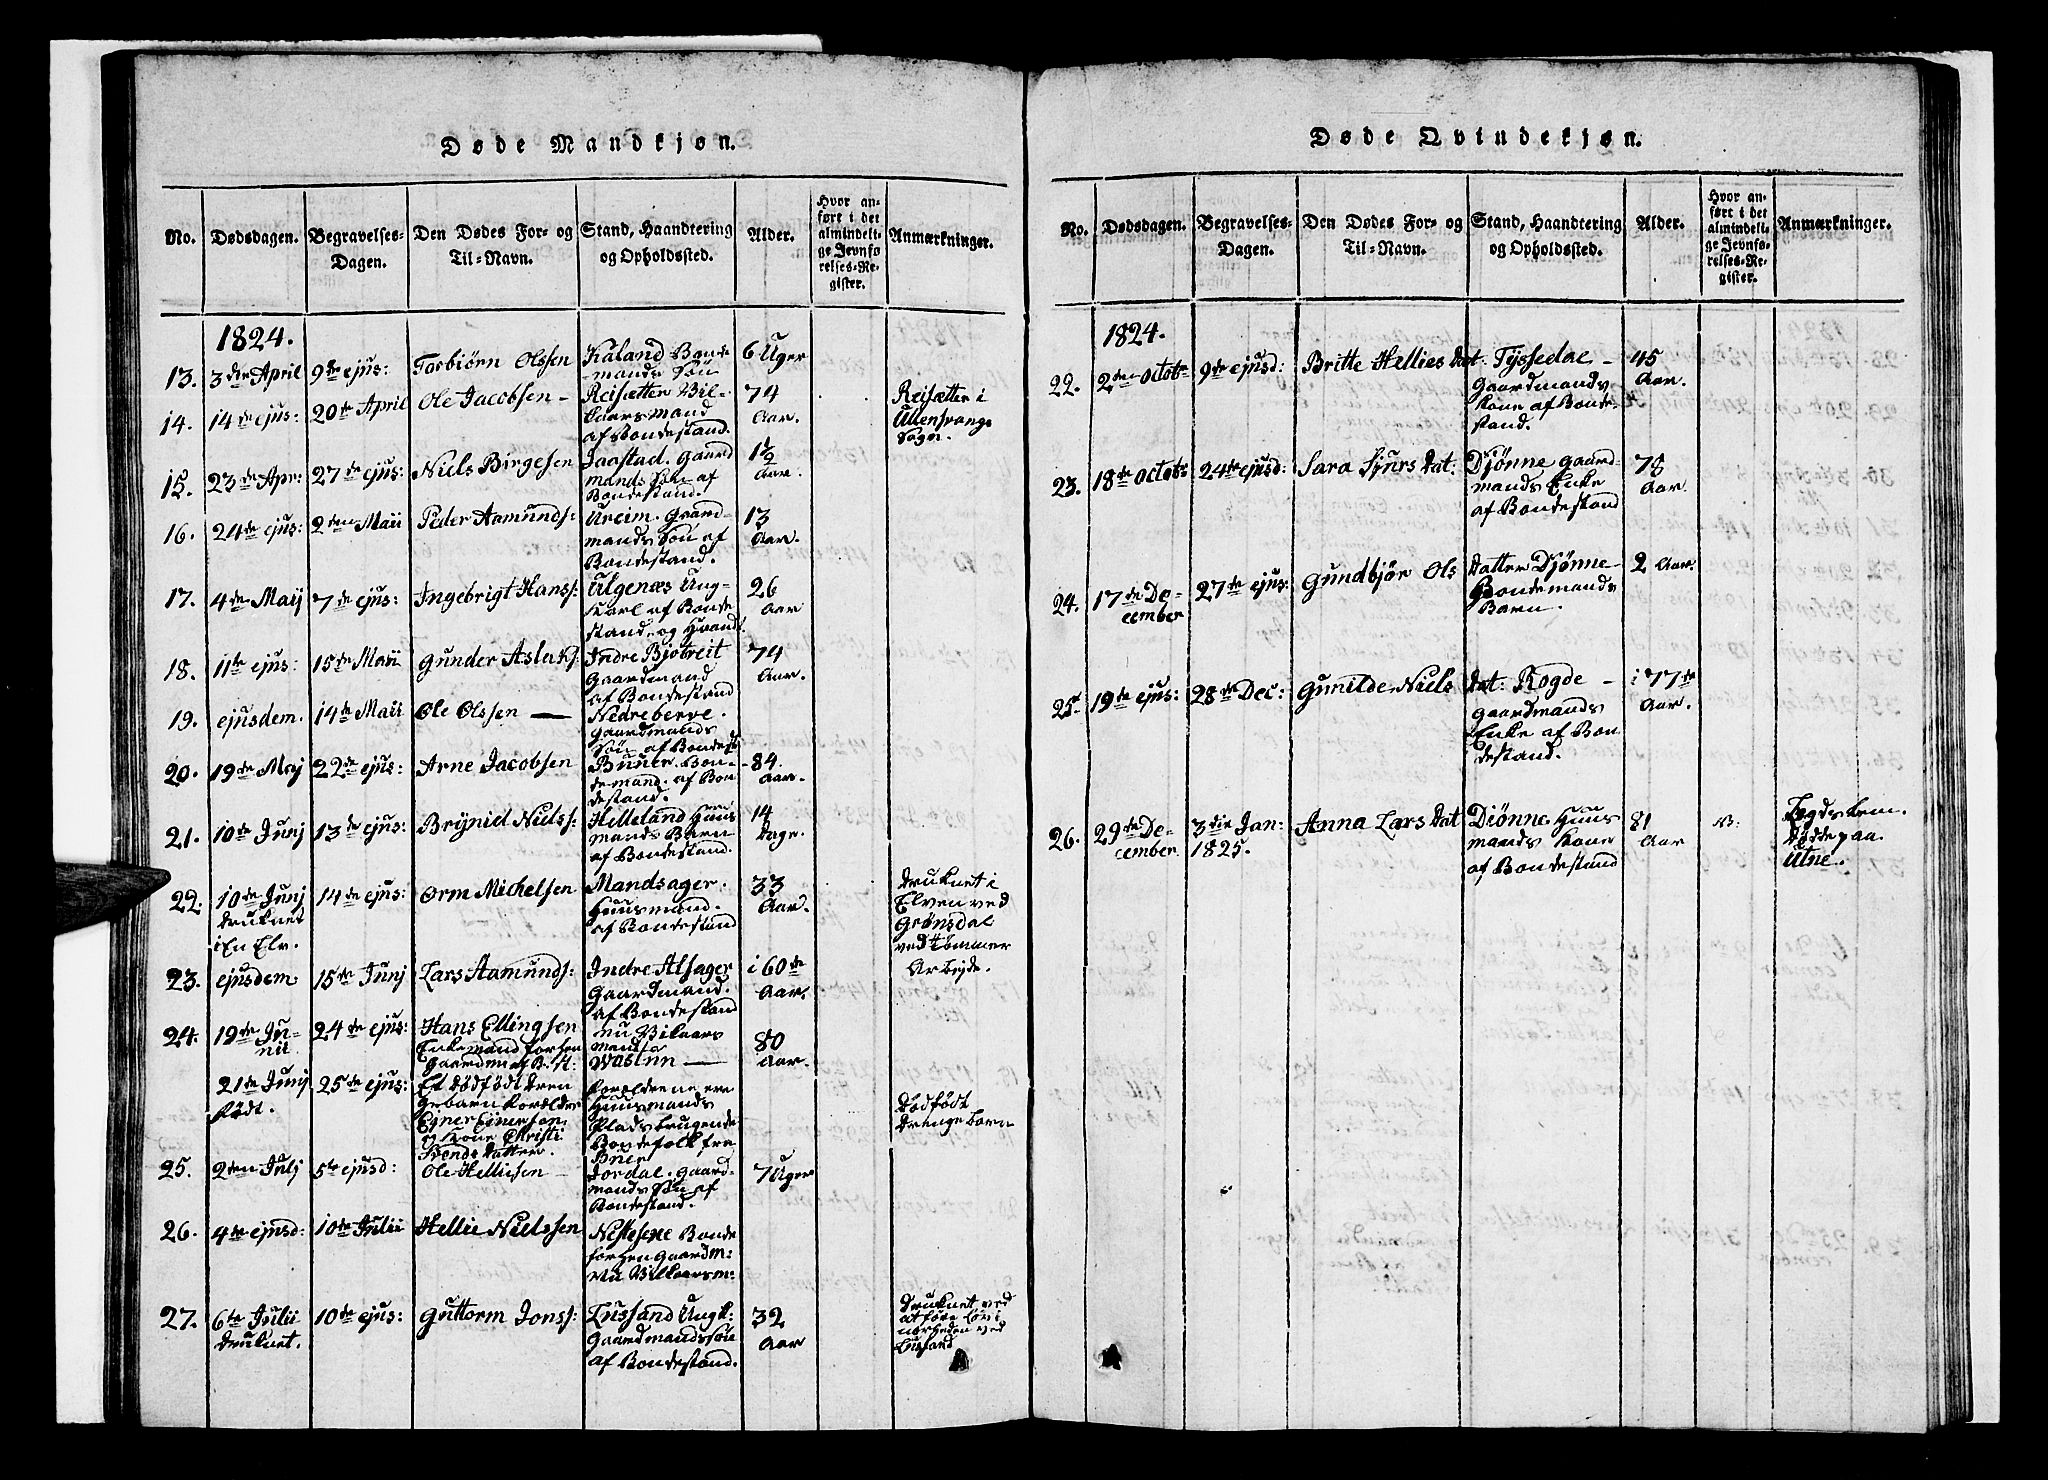 Døde Mandkjøn.
No. Dødsdagen. Begravelses-Dagen. Den Dødes For- og Til-Navn. Stand, Haandtering og Opholdssted. Alder. Hvor anført i det almindelige Jevnførelses-Register. Anmærkninger.
1824.
13. 3die April 9de ejus: Torbiörn Olssen Kåland Bondemands Sön 6 Uger
14. 14de ejus: 20de April Ole Jacobsen – Reisætter Vilkaarsmand af Bondestand. 74 Aar. Reisætter i Ullensvangs Sogn.
15. 23de Apr: 27de ejus: Niels Birgesen Jaastad. Gaardmands Sön af Bondestand. 1½ Aar.
16. 24de ejus: 2den Maii Peder Aamunds: Ureim. Gaardmands Sön af Bondestand. 13 Aar.
17. 4de Maij 7de ejus: Ingebrigt Hanss: Ulgenæs Ungkarl af Bondestand og 26 Aar
18. 11te ejus: 15de Maii Gunder Aslaks: Indre Bjotveit Gaardmand af Bondestand 74 Aar.
19. ejusdem. 14de Maii Ole Olssen — Nedreberve. Gaardmands Sön af Bondest
20. 19de Maj 22de ejus: Arne Jacobsen Bondemand. af Bondestand. 84. Aar.
21. 10de Junj 13de ejus: Brÿniel Nielss: Helleland Huusmands Barn af Bondestand. 14 Dage.
22. 10de Junj druknet i En Elv. 14de ejus: Orm Michelsen Mandsager. Huusmand. af Bondestand 33 Aar. Druknet i Elven ved Grønsdal ved Tømmer Arbejde.
23. ejusdem 15de Junj Lars Aamunds: Indre Alsager Gaardmand. af Bondestand i 60de Aar.
24. 19de Junii 24de ejus: Hans Ellingsen Enkemand forhen Gaardm: af B. St: nu Vilkaarsmand 80 Aar.
21de Junj født. 25de ejus: Et Dødfødt Drengebarn Forældre Ejner Einersøn og Kone Christi Svends Datter. Forældrene ere Huusmands Pladsbrugende Bondefolk fra Dødfødt Drengebarn
25. 2den Julj 5te ejusd: Ole Helliesen – Jordal. Gaardmands Sön af Bondestand. 7 Uger
26. 4de ejusd: 10de Julii Hellie Nielssen Bonde forhen Gaardm: nu Vilkaarsm:
27. 6te Julii druknet. 10de ejus: Guttorm Jonss: Lussand Ungk: Gaardmandssön af Bondestand. 32 Aar Druknet ved at føre Løv i nærheden ved Lussand
Døde Qvindekjøn.
No. Dødsdagen. Begravelses-Dagen. Den Dødes For- og Til-Navn. Stand, Haandtering og Opholdssted. Alder. Hvor anført i det almindelige Jevnførelses-Register. Anmærkninger.
1824.
22. 2den Octobr 9de ejusd: Britte Hellies Dat: Tÿssedal – Gaardmands Kone af Bondestand. 45 Aar.
23. 18de Octob: 24de ejusd: Sara Sjurs Dat: Djönne Gaardmands Enke af Bondestand 78 Aar.
24. 17de December 27de ejus: Gundbjör Ols Datter Djönne – Bondemands Barn. 2 Aar.
25. 19de ejus: 28de Dec: Gunilde Niels Dat: Rogde – Gaardmands Enke af Bondestand. i 77de Aar.
26. 29de December 3die Jan: 1825. Anna Lars Dat Diönne. Huusmands Kone af Bondestand 81 Aar Døde paa Utne.